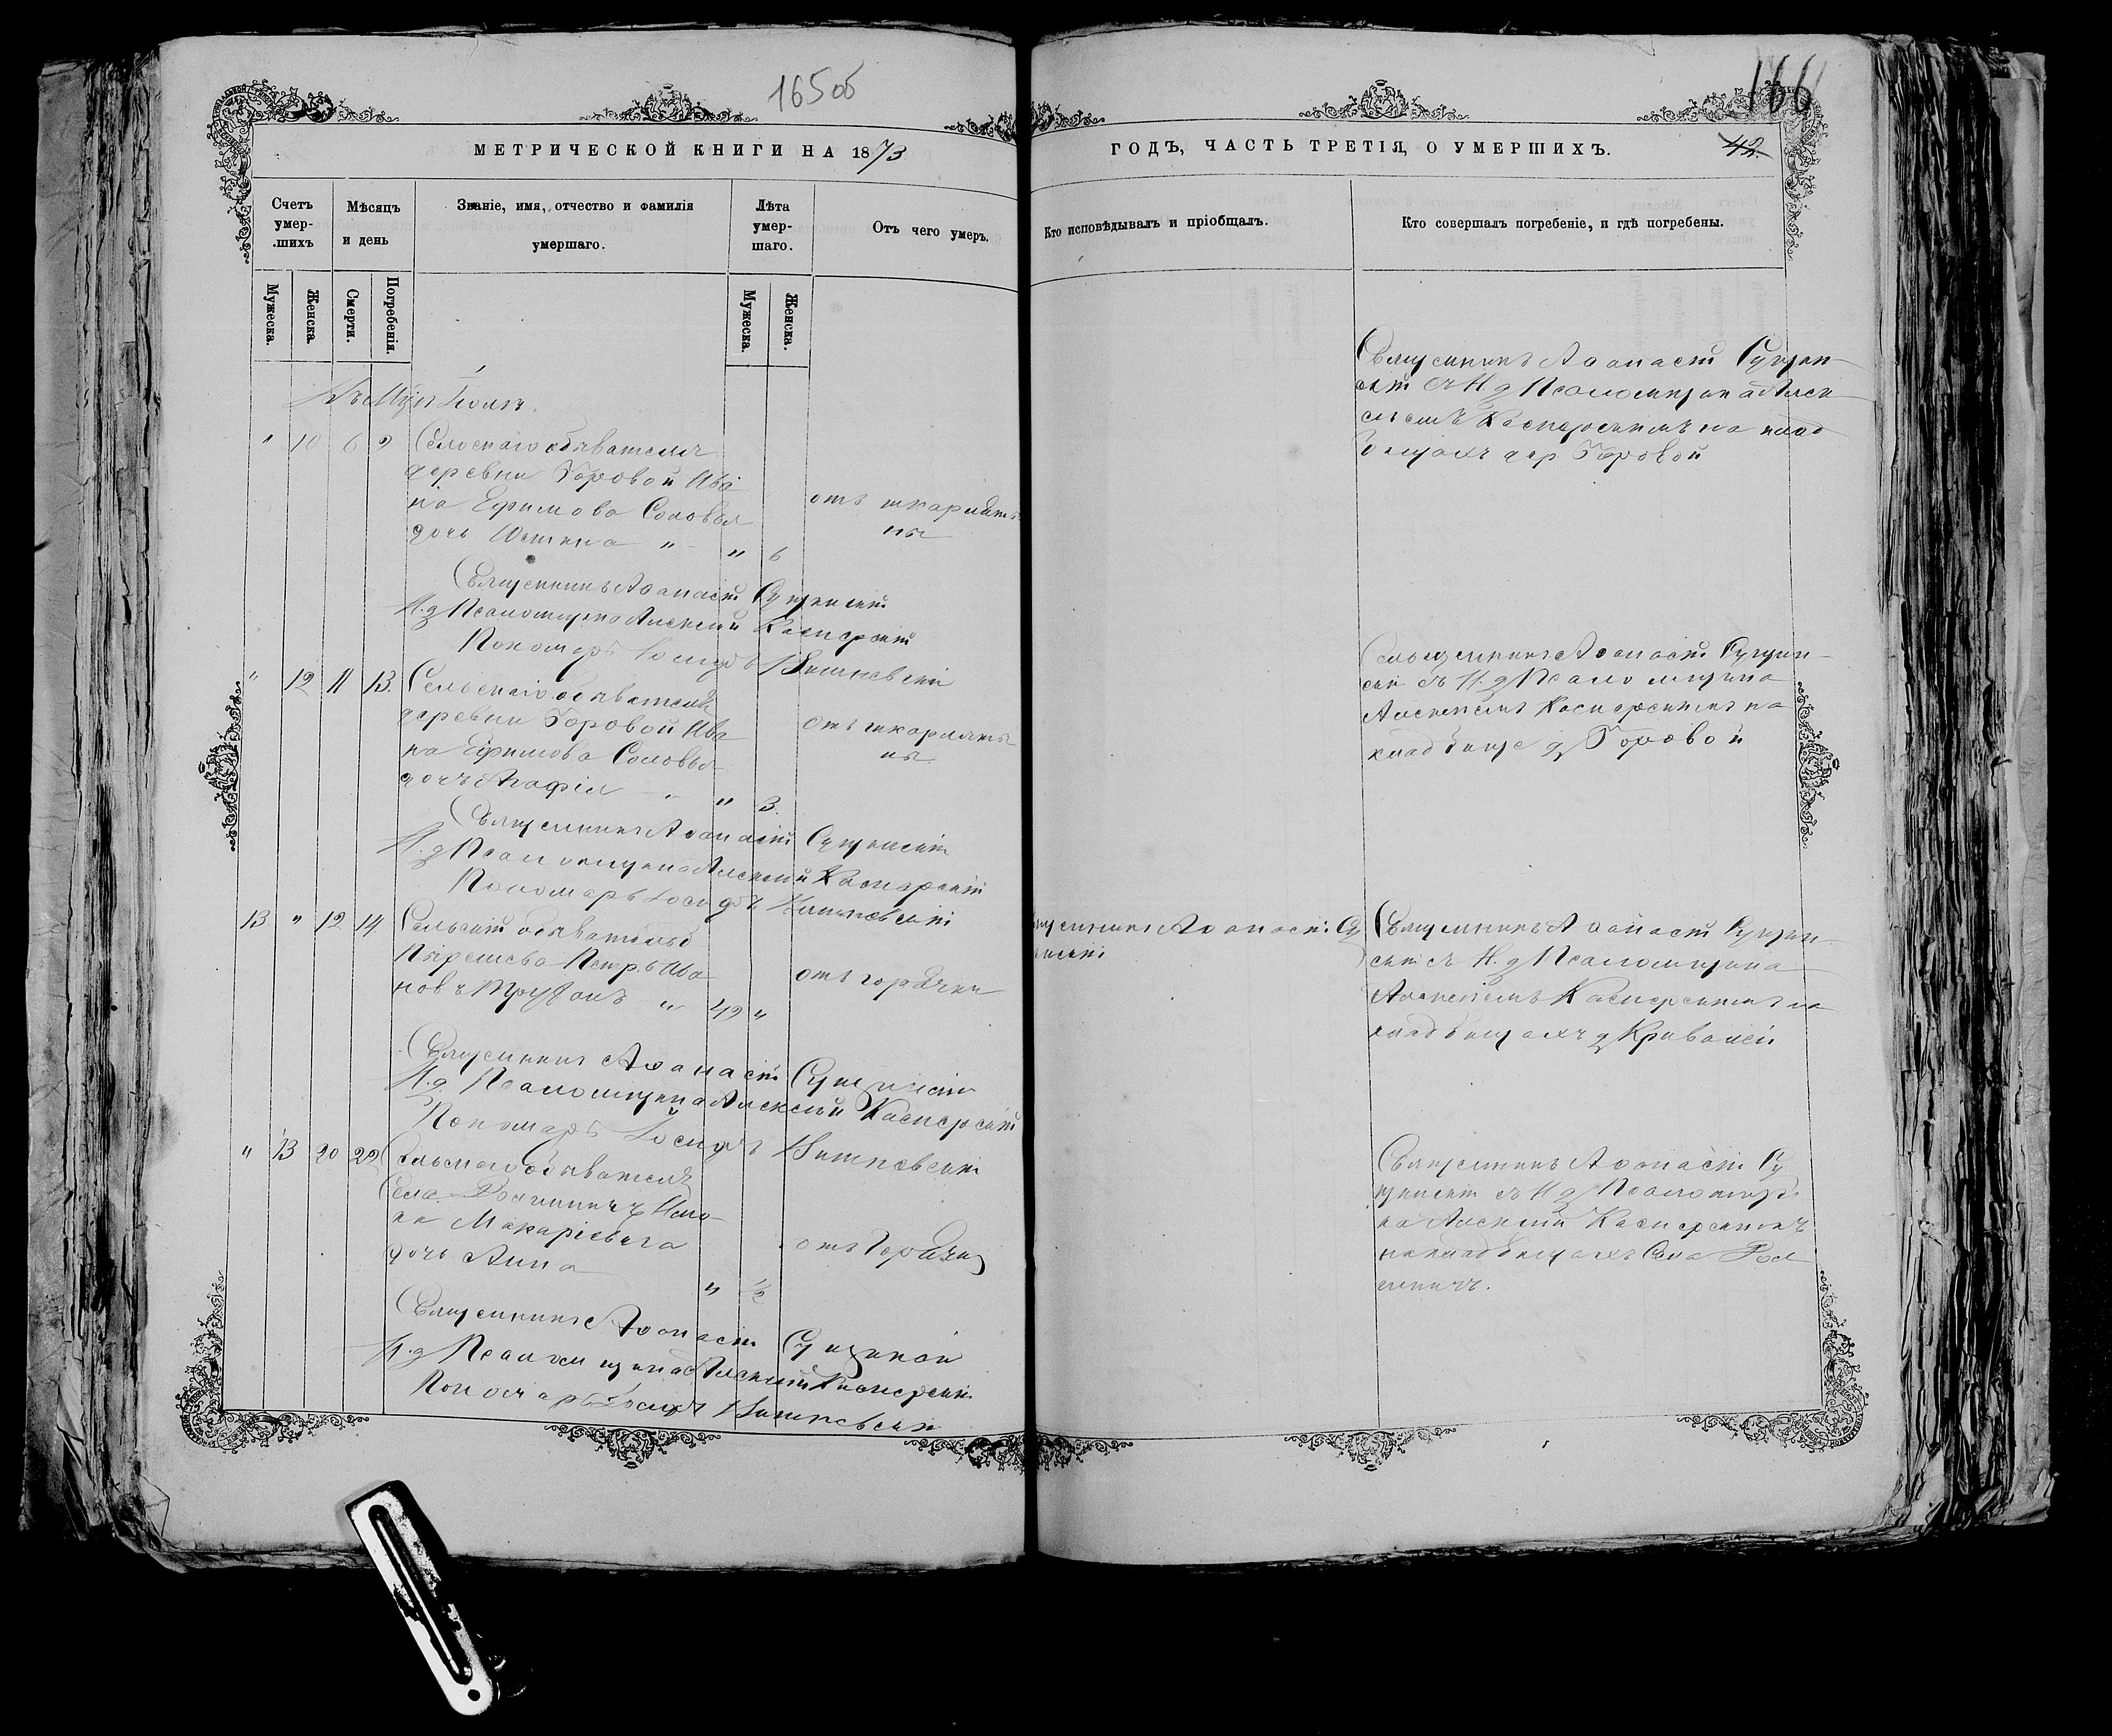 165 об
166
МЕТРИЧЕСКОЙ КНИГИ НА 1873
ГОДЪ, ЧАСТЬ ТРЕТІЯ, О УМЕРШИХЪ.
42.
Счетъ умер-шихъ
Мѣсяцъ и день
Званіе, имя, отчество и фамилія умершаго.
Лѣта умер-шаго.
Отъ чего умеръ.
Кто исповѣдывалъ и пріобщалъ.
Кто совершалъ погребеніе, и гдѣ погребены.
Мужеска.
Женска.
Смерти.
Погребенія.
Мужеска.
Женска.
" 10 6
Сельскаго обывателя
деревни Горовой Ива
на Ефимова Соловья
дочь " " 6
отъ шкарлати
ны
Священникъ Аѳанасій Сущин
скій съ И д Псаломщика Алек
сѣемъ Касперскимъ на клад
бищахъ дер. Горовой
Священникъ Аѳанасій Сущинскій
И. д Псаломщика Алексѣй Касперскій
Пономарь Іосифъ Вишневскій
" 12 11 13.
Сельскаго обывателя
деревни Горовой Ива
на Ефимова Соловья
дочь Агафія " " 3.
отъ шкарлати
ны
Священникъ Аѳанасій Сущин
скій съ И. д Псаломщика
Алексѣемъ Касперскимъ на
кладбище д Горовой
Священникъ Аѳанасій Сущинскій
И. д Псаломщика Алексѣй Касперскій
Пономарь Іосифъ Вишневскій
13 " 12 14
Сельскій обыватель д
Петръ Ива
новъ " 49 "
отъ горячки
Священникъ Аѳанасій Су
щинскій
Священникъ Аѳанасій Сущин
скій съ И. д Псаломщика
Алексѣемъ Касперскимъ на
кладбищахъ д
Священникъ Аѳанасій Сущинскій
И. д. Псаломщика Алексѣй Касперскій
Пономарь Іосифъ Вишневскій
" 13 20 22
Сельскаго обывателя
Села
Макаріевича
дочь Анна " ½
отъ Горячки
Священникъ Аѳанасій Су
щинскій съ И д Псаломщи
ка Алексѣй Касперскимъ
на кладбищахъ Села
Священникъ Аѳанасій Сущинскій
И. д Псаломщика Алексѣй Касперскій
Пономарь Іосифъ Вишневскій